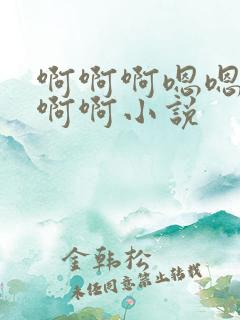 啊啊啊嗯嗯
啊啊小说
金韩松
未经同意禁止转载